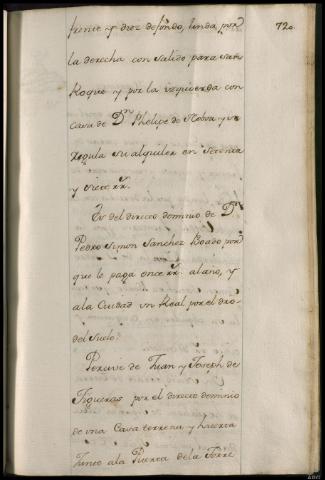 72o
frente y diez de fondo, linda por
la derecha con salido para San
Roque y por la izquierda con
Casa de Dn Phelipe de Noboa y se
regula su alquiler en setenta
y siete rrs.
Es del directo dominio de Dn
Pedro Simon Sanchez Boado por
que le paga once rrs al año, y
a la Ciudad un Real por el dro
del suelo.
Percive de Juan y Joseph de
Figueras por el directo dominio
de una Casa terrena y huerta
junto a la Puerta de la Torre